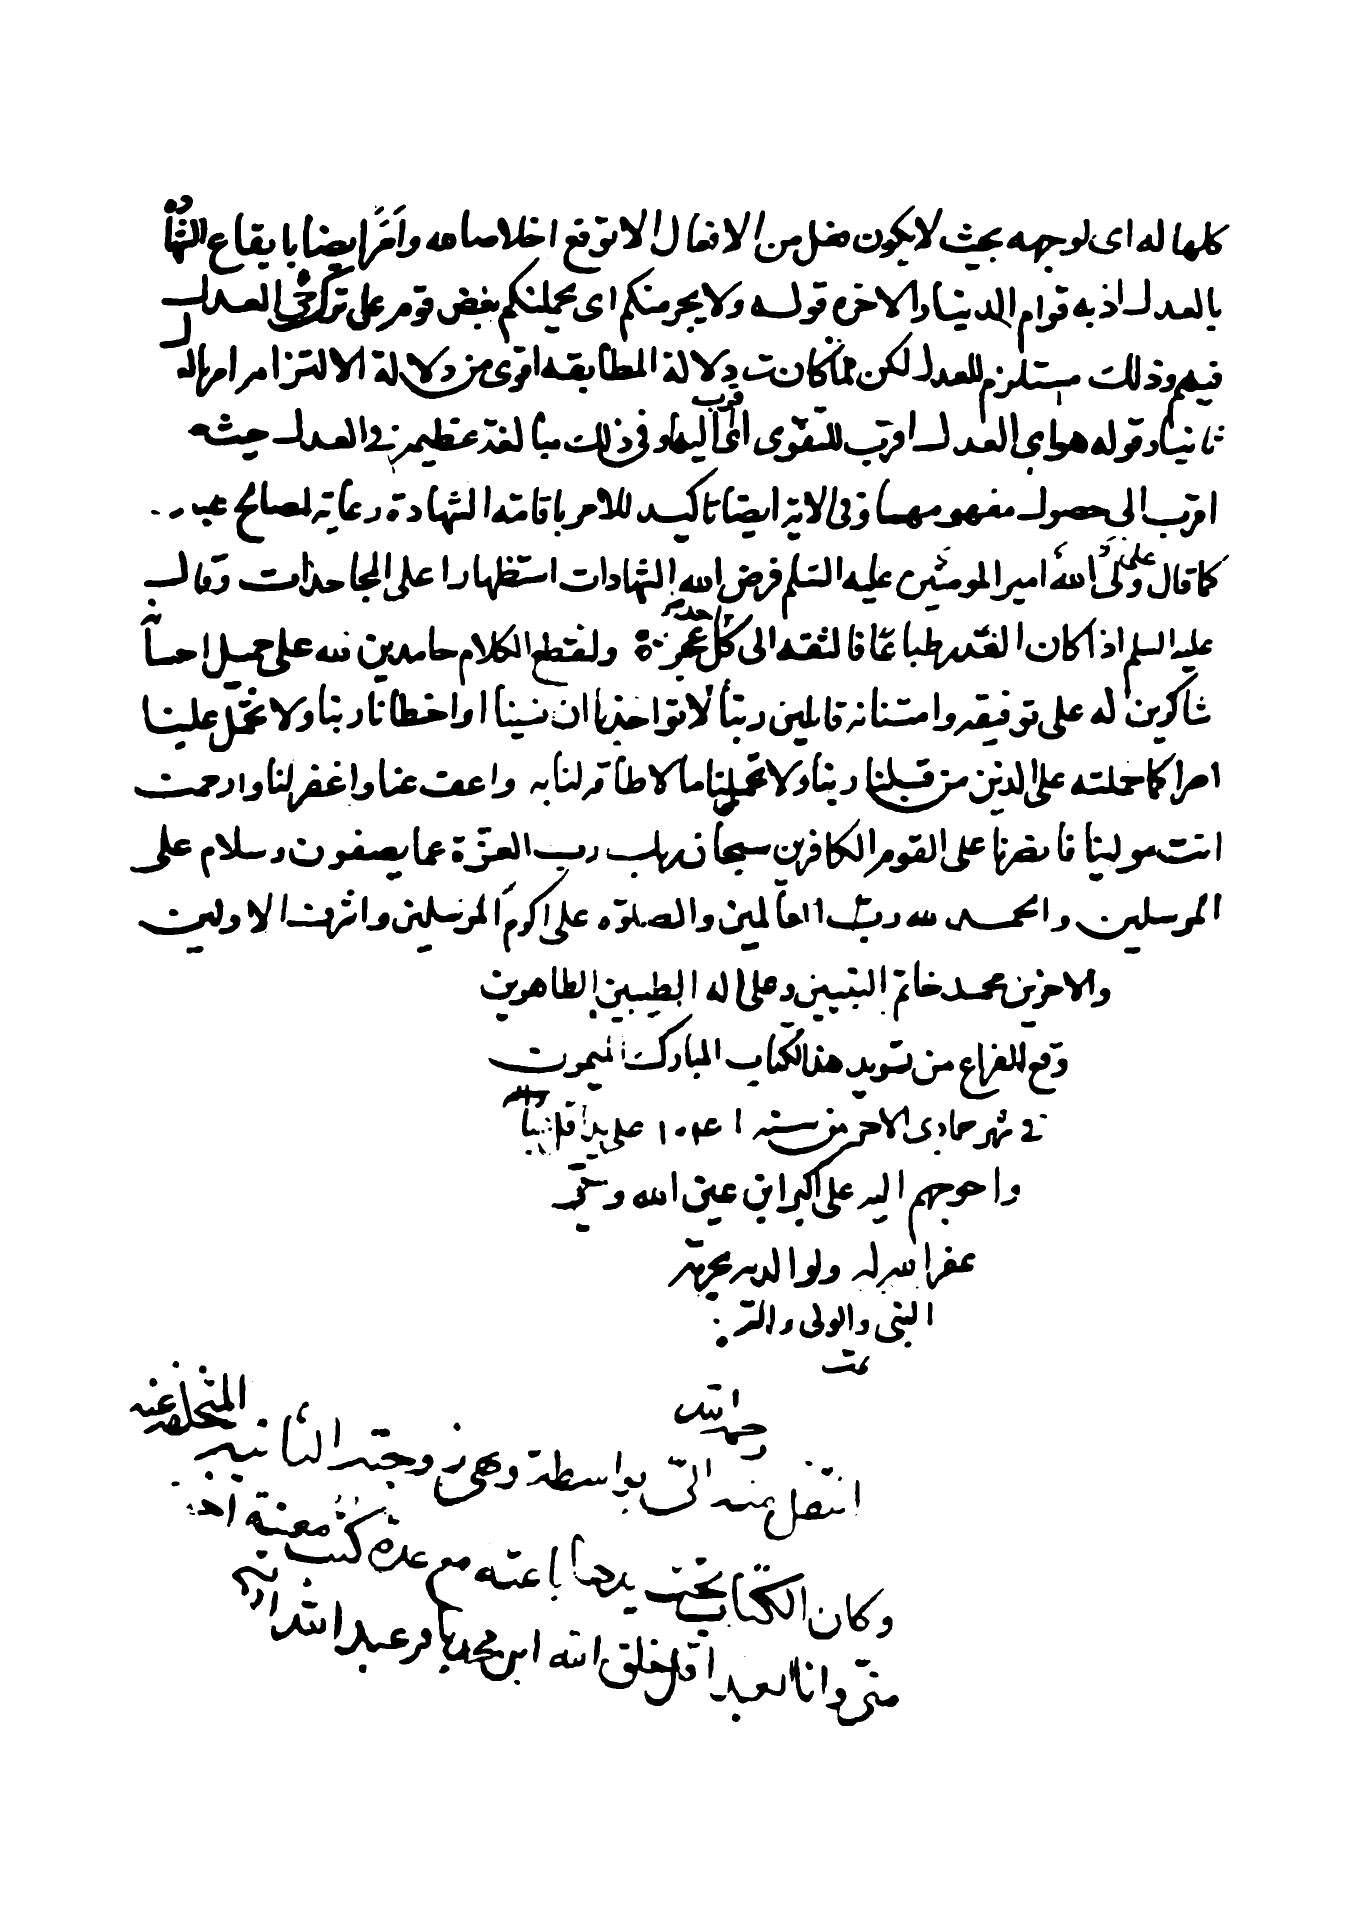 كلها له اى لوجهه بحيث لا يكون فعل من الافعال الا توقع اخلاصا معه وامر ايضا بايقاع الشهادة
بالعدل اذ به قوام الدنيا والاخره قوله ولا يجرمنكم اى يحملنكم بغض قوم على ترككم العدل
فيهم وذلك مستلزم للعدل لكن لما كانت دلالة المطابقه اقوى من دلالة الالتزام امر بالعدل
ثانيا وقوله هو اى العدل اقرب للتقوى اى اقرب اليها وفى ذلك مبالغة عظيمة فى العدل حيث
اقرب الى حصول مفهومهما وفى الاية ايضا تاكيد للامر باقامة الشهادة رعاية لمصالح
كما قال على ولى الله امير المومنين عليه السلم فرض الله الشهادات استظهارا على المجاحدات وقال
عليه السلم اذا كان الغدر طباعا فالثقه الى كل احد عجز ولنقطع الكلام حامدين لله على جميل احسانه
شاكرين له على توفيقه وامتنانه قايلين ربنا لا تواخذنا ان نسينا او اخطانا ربنا ولا تحمل علينا
اصرا كما حملته على الذين من قبلنا ربنا ولا تحملنا ما لا طاقه لنا به واعف عنا واغفر لنا وارحمنا
انت مولينا فانصرنا على القوم الكافرين سبحان ربك رب العزة عما يصفون وسلام على
المرسلين والحمد لله رب العالمين والصلوه على اكرم المرسلين واشرف الاولين
والاخرين محمد خاتم النبيين وعلى اله الطيبين الطاهرين
وقع الفراغ من تسويد هذا الكتاب المبارك الميمون
فى شهر جمادى الاخر من سنه على يد اقل
واحوجهم اليه على اكبر ابن عين الله
غفر الله له ولوالديه بحرمة
النبى والولى
تمت
رحمه الله
انتقل منه الىّ بواسطة وهى زوجته الثانيه المتخلفه عنه
وكان الكتاب تحت يدها باعته مع عدة كتب
منى وانا العبد اقل خلق الله ابن محمد باقر عبد الله